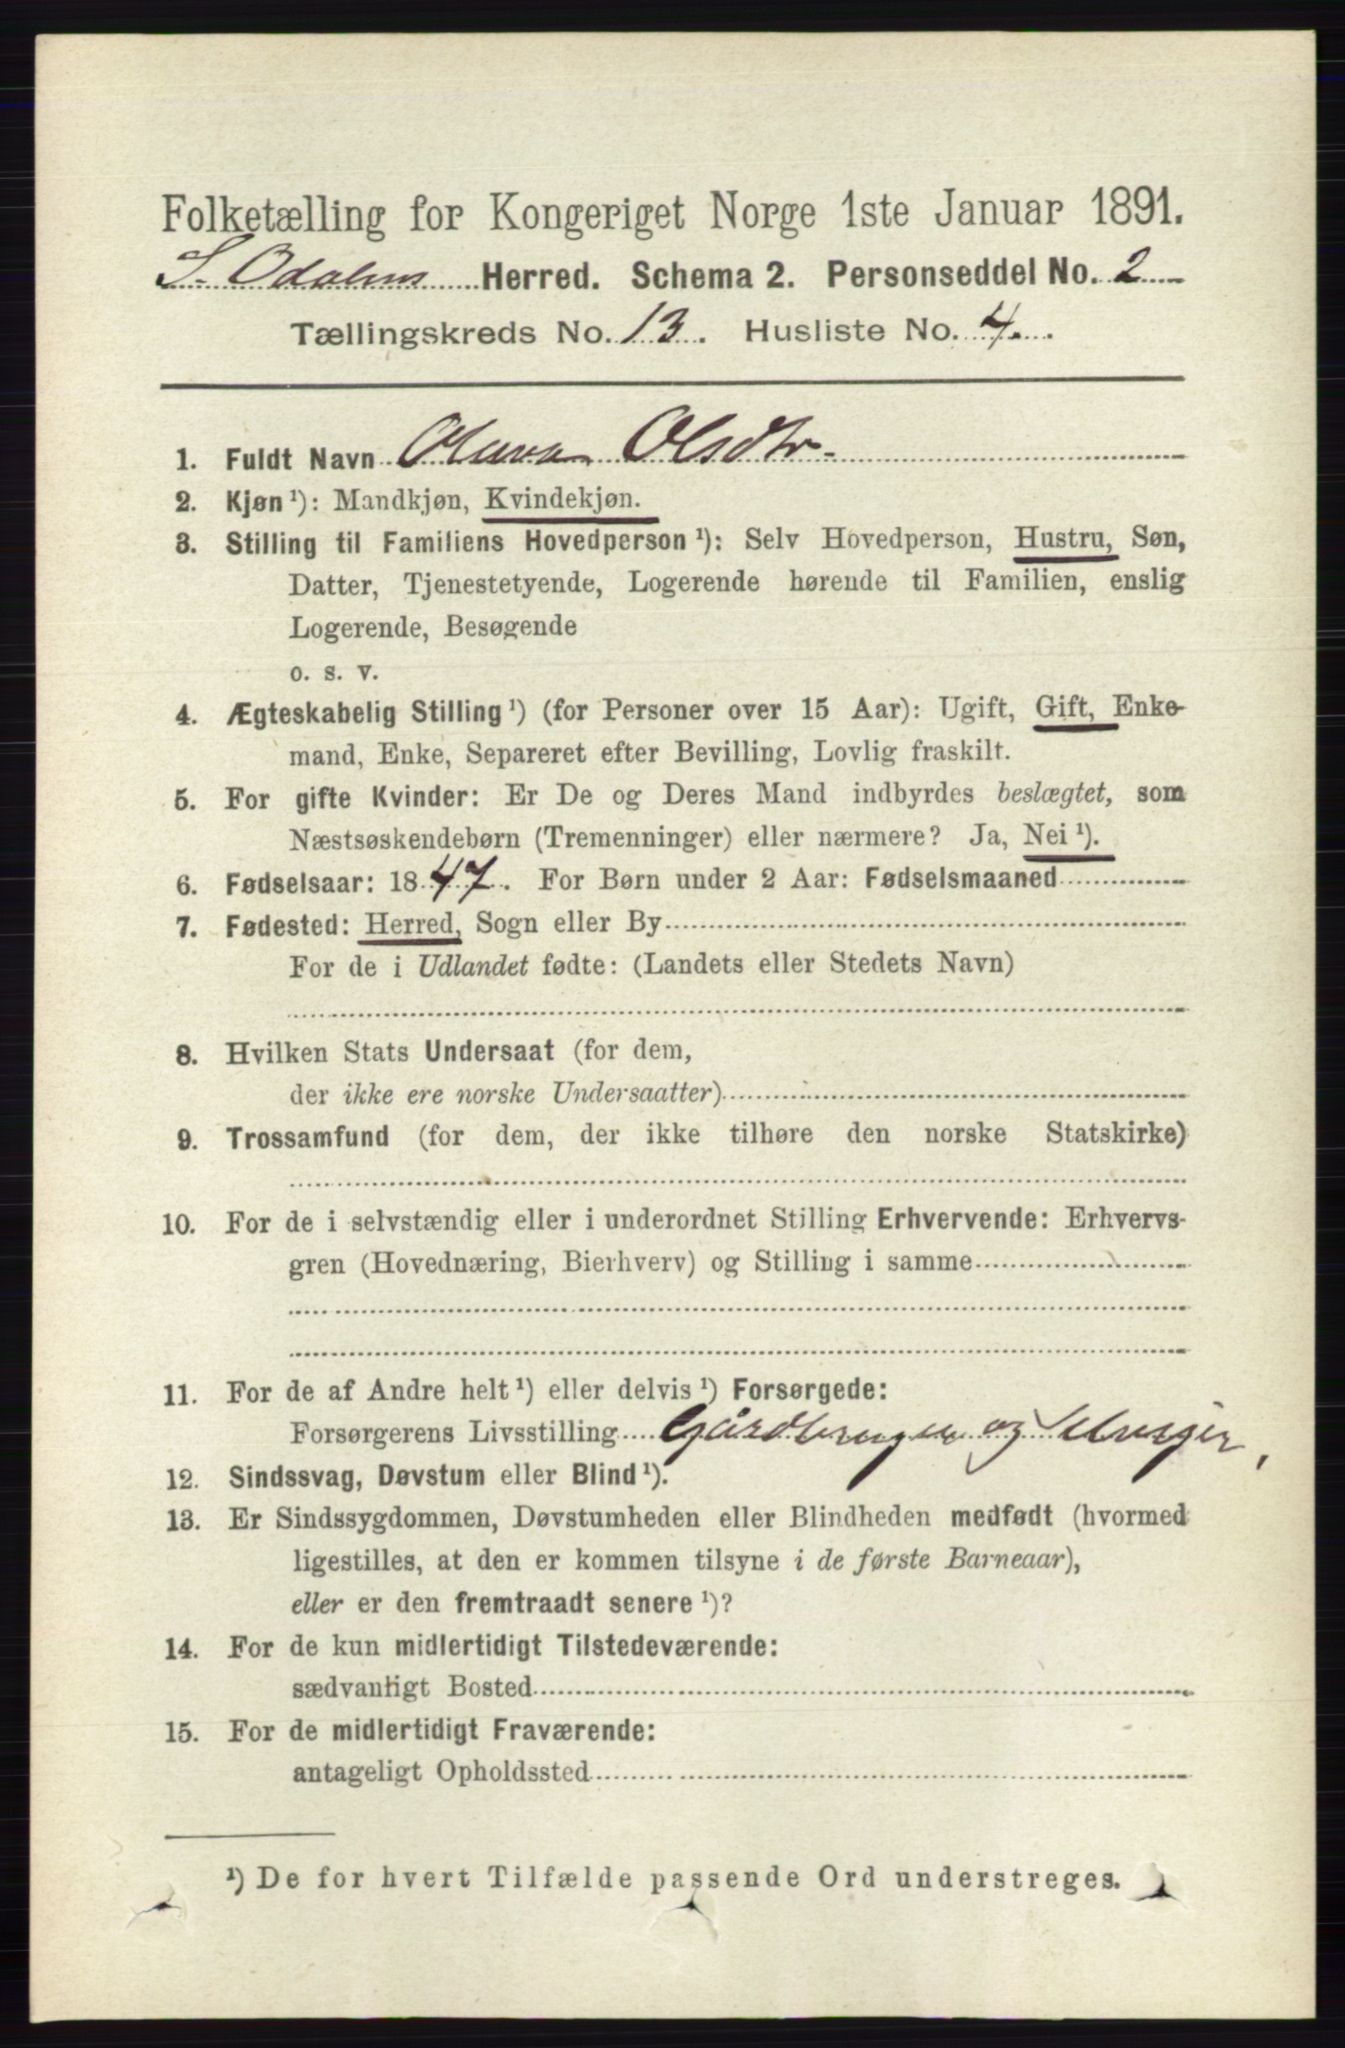 Folketælling for Kongeriget Norge 1ste Januar 1891.
S. Odalens Herred. Schema 2. Personseddel No. 2
Tællingskreds No. 13. Husliste No. 4.
1. Fuldt Navn Olava Olsdtr.
2. Kjøn ¹): Mandkjøn, Kvindekjøn.
3. Stilling til Familiens Hovedperson ¹): Selv Hovedperson, Hustru, Søn,
Datter, Tjenestetyende, Logerende hørende til Familien, enslig
Logerende, Besøgende
o. s. v.
4. Ægteskabelig Stilling ¹) (for Personer over 15 Aar): Ugift, Gift, Enke-
mand, Enke, Separeret efter Bevilling, Lovlig fraskilt.
5. For gifte Kvinder: Er De og Deres Mand indbyrdes beslægtet, som
Næstsøskendebørn (Tremenninger) eller nærmere? Ja, Nei ¹).
6. Fødselsaar: 1847. For Børn under 2 Aar: Fødselsmaaned
7. Fødested: Herred, Sogn eller By
For de i Udlandet fødte: (Landets eller Stedets Navn)
8. Hvilken Stats Undersaat (for dem,
der ikke ere norske Undersaatter)
9. Trossamfund (for dem, der ikke tilhøre den norske Statskirke)
10. For de i selvstændig eller i underordnet Stilling Erhvervende: Erhvervs-
gren (Hovednæring, Bierhverv) og Stilling i samme
11. For de af Andre helt ¹) eller delvis ¹) Forsørgede:
Forsørgerens Livsstilling Gårdbruger og Selveier,
12. Sindssvag, Døvstum eller Blind ¹).
13. Er Sindssygdommen, Døvstumheden eller Blindheden medfødt (hvormed
ligestilles, at den er kommen tilsyne i de første Barneaar),
eller er den fremtraadt senere ¹)?
14. For de kun midlertidigt Tilstedeværende:
sædvanligt Bosted
15. For de midlertidigt Fraværende:
antageligt Opholdssted
¹) De for hvert Tilfælde passende Ord understreges.